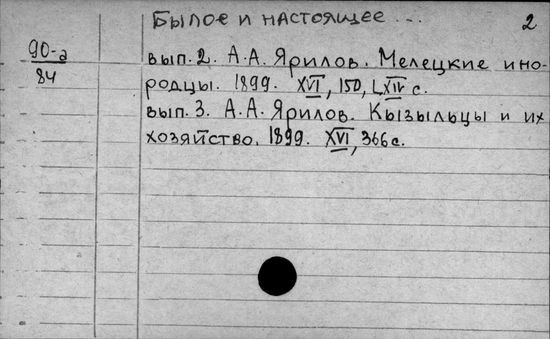 Былое и настоящее... 2
90-а
84
вып. 2. А.А. Ярилов. Мелецкие ино-
родцы. 1899. XVI, 150, LXIV с.
вып. 3. А.А. Ярилов. Кызыльцы и их
хозяйство. 1899. XVI, 366 с.